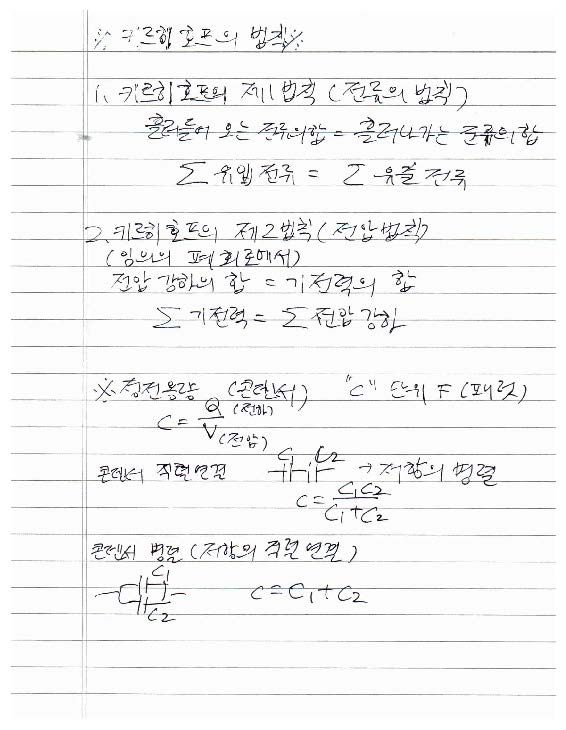 ※ 키르히호프의 법칙※
1. 키르히호프의 제1법칙 (전류의 법칙)
흘러들어 오는 전류의합 = 흘러나가는 전류의합
Σ 유입전류 = Σ 유출전류
2. 키르히호프의 제2법칙 (전압법칙)
(임의의 폐회로에서)
전압강하의 합 = 기전력의 합
Σ 기전력 = Σ 전압강하
※ 정전용량 (콘덴서) "C" 단위 F (패럿)
C = Q (전하) / V (전압)
콘덴서 직렬연결 C1 C2 → 저항의 병렬
C = C1C2 / C1+C2
콘덴서 병렬 (저항의 직렬연결)
C1
C2 C = C1 + C2